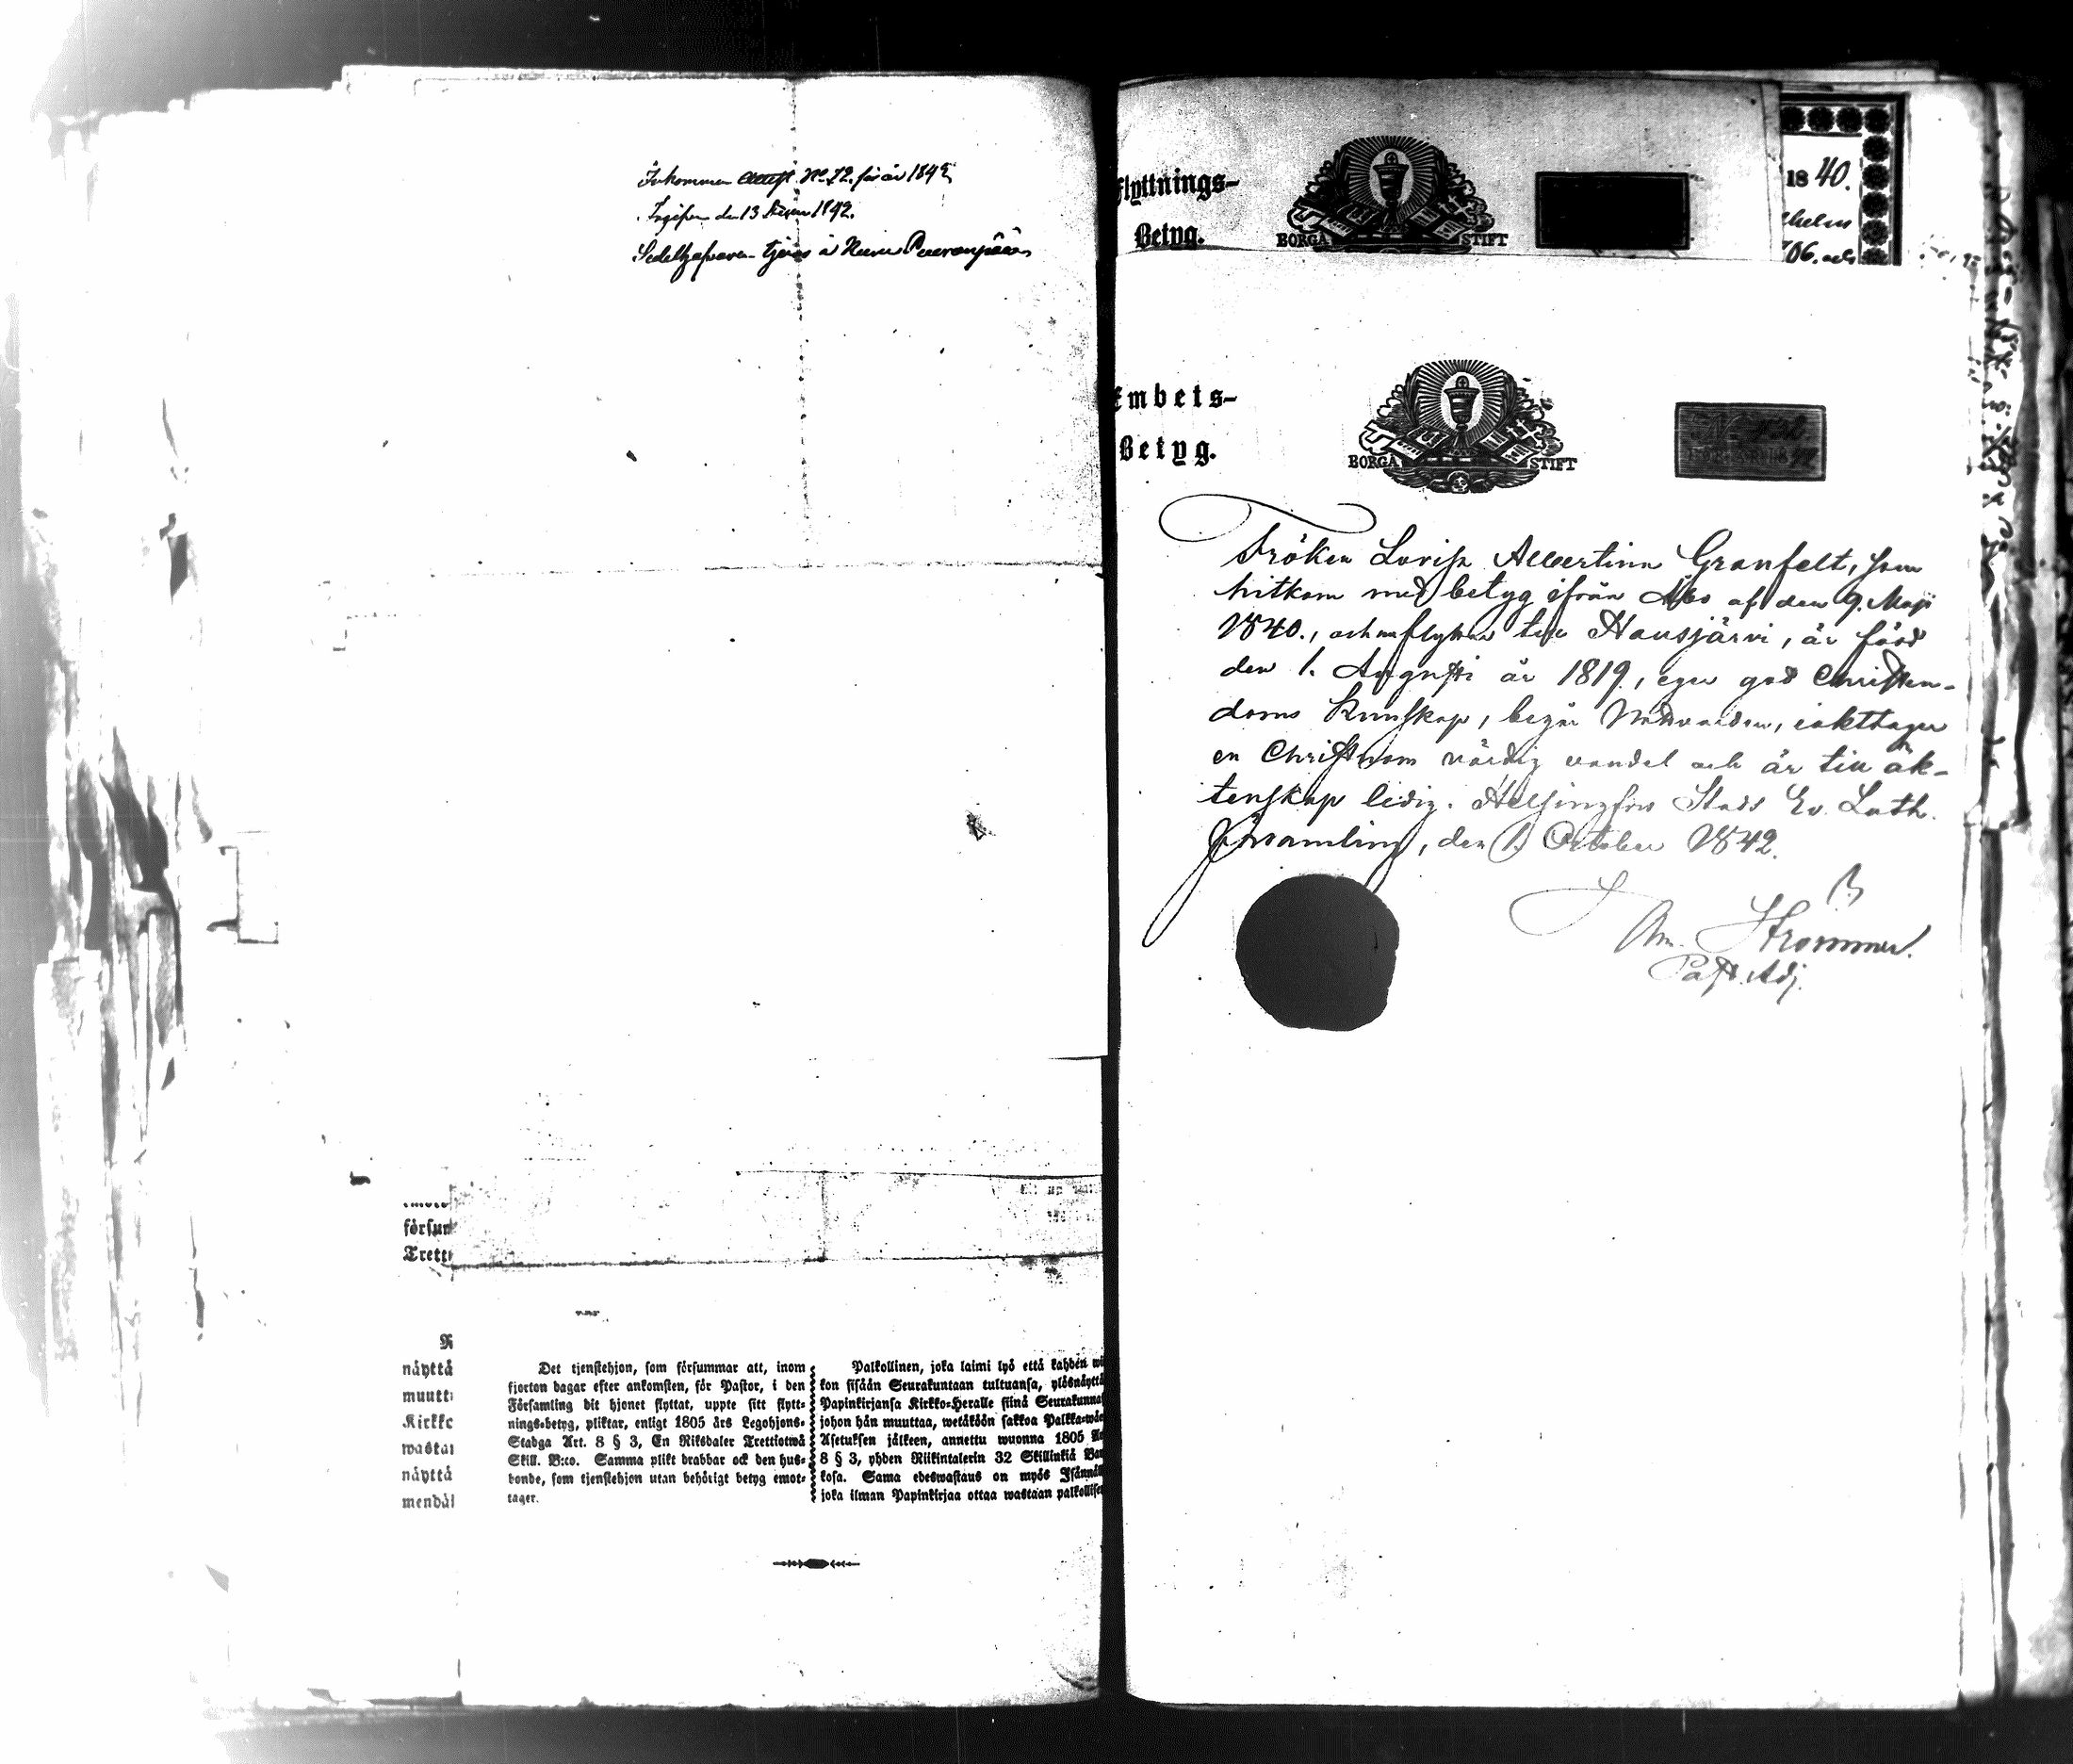 Inkommen Attest No 72. för år 1842
Ingifven den 13 1842.
Sedelhafvaren tjenar å
försum
Trett
N
näyttä
muutt
Kirkko
wasta
näyttä
mendäl
Det tjenstehjon, som försummar att, inom
fjorton dagar efter ankomsten, för Pastor, i den
Församling dit hjonet flyttat, uppte sitt flytt-
nings-betyg, pliktar, enligt 1805 års Legohjons-
Stadga Art. 8 § 3, En Riksdaler Trettiotwå
Skill. B:co. Samma plikt drabbar ock den hus-
bonde, som tjenstehjon utan behörigt betyg emot-
tager.
Palkollinen, joka laimi lyö että kahden wii
kon sisään Seurakuntaan tultuansa, ylösnäyttä
Papinkirjansa Kirkko-Heralle siinä Seurakunnas
johon hän muuttaa, wetäköön sakkoa Palkka-wäe
Asetuksen jälkeen, annettu wuonna 1805 Ar
8 § 3, yhden Riikintalerin 32 Skillinkiä Ban
kosa. Sama edeswastaus on myös Isännäll
joka ilman Papinkirjaa ottaa wastaan palkollisen
Flyttnings-
Betyg.
BORGÅ STIFT
1840.
helm
706. och
Embets-
Betyg.
BORGÅ STIFT
Fröken Lovisa Albertina Granfelt, som
hitkom med betyg ifrån Åbo af den 9. Maji
1840., och nu flyttar till Hausjärvi, är född
den 1. Augusti år 1819, eger god Christen-
doms Kunskap, begår Nattvarden, iakttager
en Christnom värdig vandel och är till äk-
tenskap ledig. Helsingfors Stads Ev. Luth.
församling, den 1. October 1842.
Strömmer.
Past. Adj.